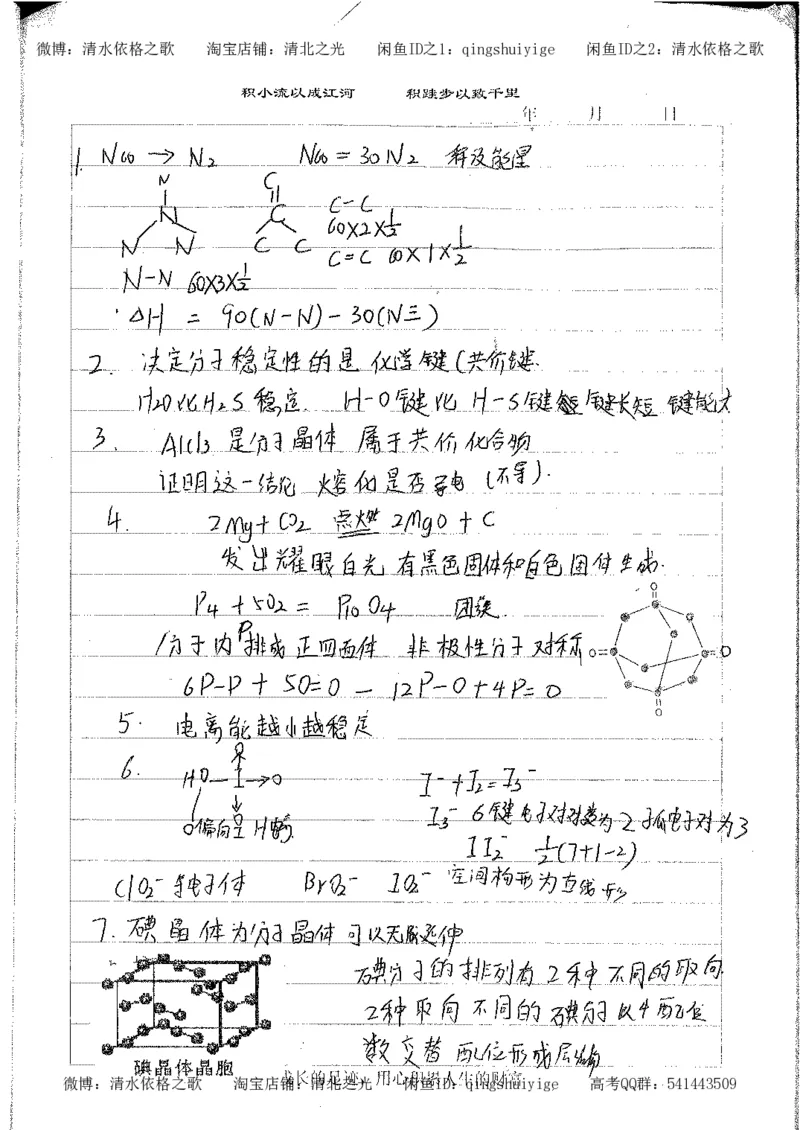 微博：清水依格之歌 淘宝店铺：清北之光 闲鱼ID之1：qingshuiyige 闲鱼ID之2：清水依格之歌
积小流以成江河 积跬步以致千里
年 月 日
1. N60 → N2 N60 = 30N2 释放能量
N C
N C C-C
N N C C 60×2×1/2
C=C 60×1×1/2
N-N 60×3×1/2
ΔH = 90(N-N) - 30(N≡)
2. 决定分子稳定性的是 化学键(共价键.
H2O比H2S稳定. H-O键比 H-S键 键长短 键能大
3. AlCl3 是分子晶体 属于共价化合物
证明这一结论 熔化是否导电 (不导).
4. 2Mg + CO2 点燃 2MgO + C
发出耀眼白光 有黑色固体和白色固体生成.
P4 + 5O2 = P10O4
分子内P排成正四面体 非极性分子 对称
O O O O
6P-P + 5O=O - 12P-O + 4P=O
5. 电离能越小越稳定
6. HO-I→O I- + I2 = I3-
O偏向 H
I3- 6键电子对对数为2 孤电子对为3
I I2- 1/2(7+1-2)
ClO2- 等电子体 BrO2- IO2- 空间构形为直线形
7. 碘晶体为分子晶体 可以无限延伸
碘分子的排列有2种不同的取向
2种取向不同的碘分子以4配位
数交替配位形成层
碘晶体晶胞
成长的足迹，用心
微博：清水依格之歌 淘宝店铺：清北之光 闲鱼ID：qingshuiyige 高考QQ群：541443509